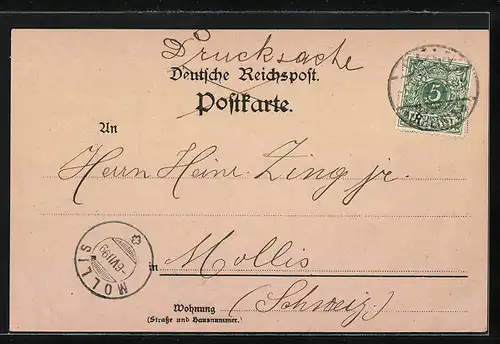 Drucksache
Deutsche Reichspost.
Postkarte.
5
An
Herrn Heinr. Zing jr.
MOLLIS
in Mollis
Wohnung (Schweiz)
(Straße und Hausnummer)